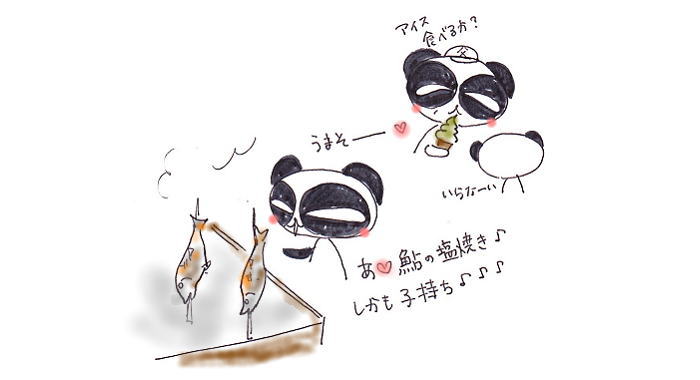 アイス
食べるか?
父
うまそー
いらなーい
あ♡鮎の塩焼き♪
しかも子持ち♪♪♪